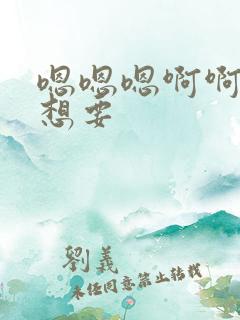 嗯嗯嗯啊啊
想要
劉義
未经同意禁止转载